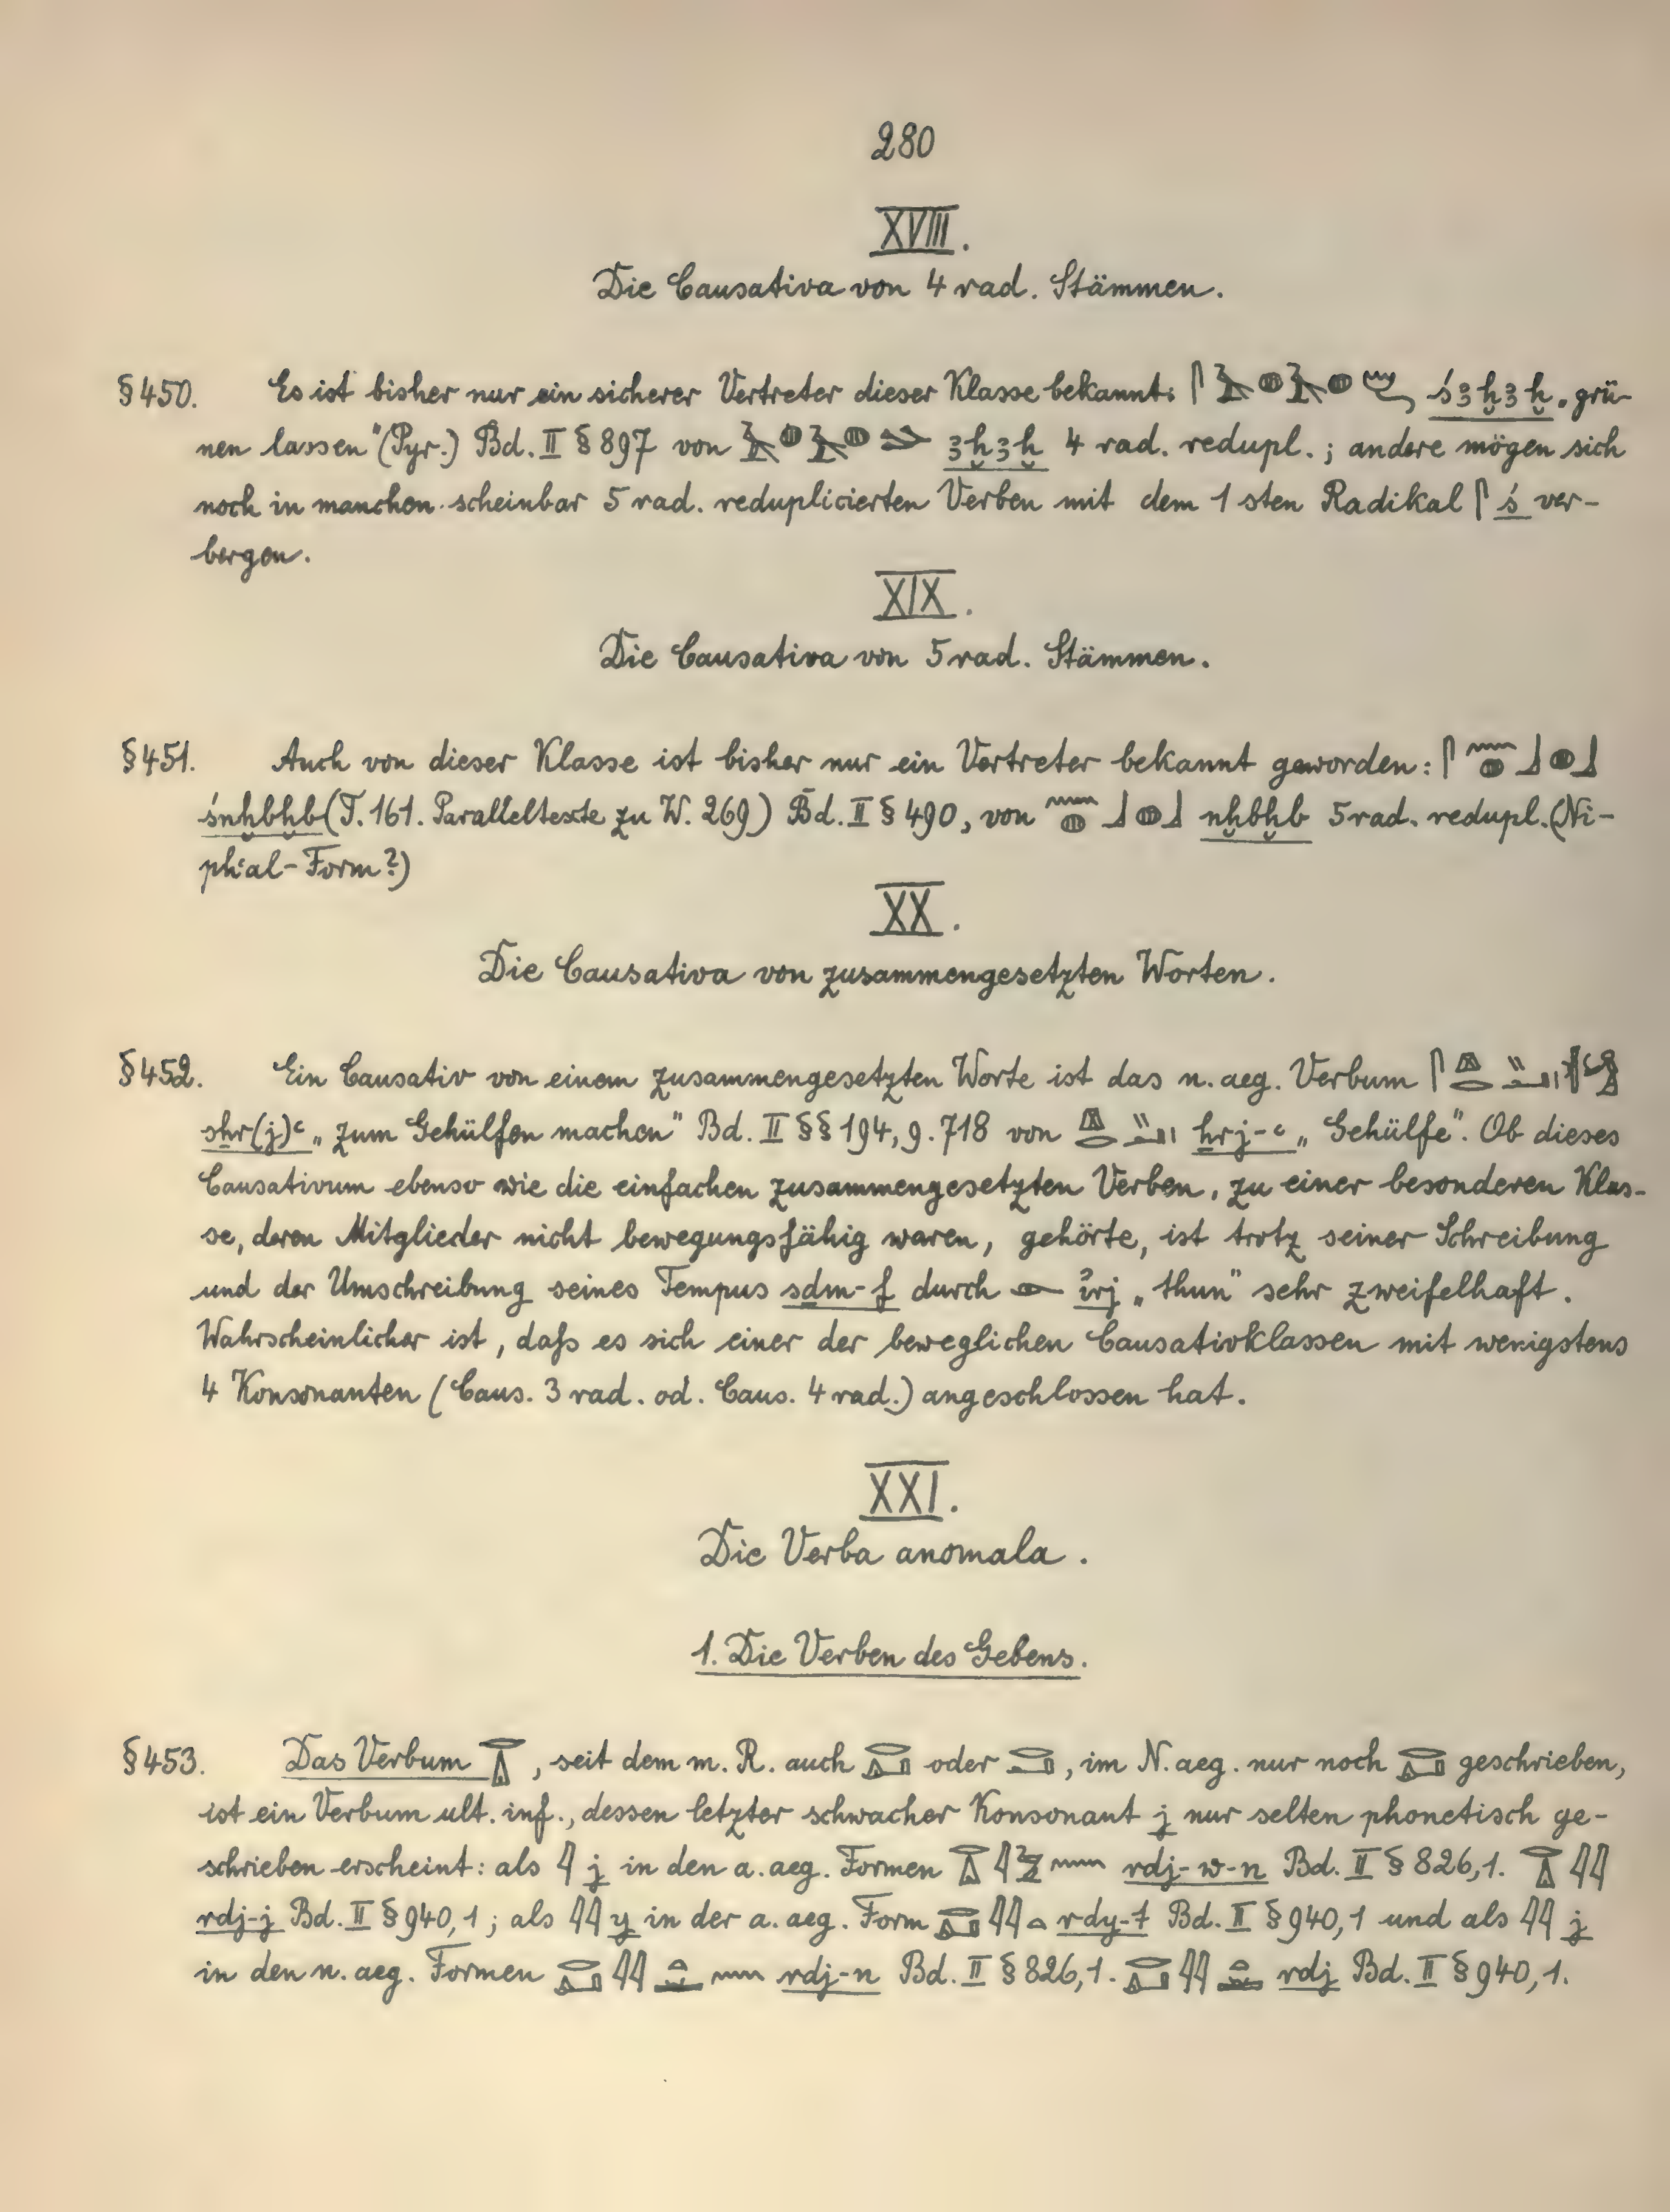 280
XVIII.
Die Causativa von 4 rad. Stämmen.
§ 450. Es ist bisher nur ein sicherer Vertreter dieser Klasse bekannt: ś3ḫ3ḫ „grü-
nen lassen“ (Pyr.) Bd. II § 897 von 3ḫ3ḫ 4 rad. redupl.; andere mögen sich
noch in manchen scheinbar 5 rad. reduplicierten Verben mit dem 1sten Radikal 𓋴 ś ver-
bergen.
XIX.
Die Causativa von 5 rad. Stämmen.
§ 451. Auch von dieser Klasse ist bisher nur ein Vertreter bekannt geworden: 𓋴𓈖𓐍𓃀𓐍𓃀
śnḫbḫb (T. 161. Paralleltexte zu W. 269) Bd. II § 490, von 𓈖𓐍𓃀𓐍𓃀 nḫbḫb 5 rad. redupl. (Ni-
phʿal-Form?)
XX.
Die Causativa von zusammengesetzten Worten.
§ 452. Ein Causativ von einem zusammengesetzten Worte ist das n. aeg. Verbum
sẖr(j)ʿ „zum Gehülfen machen“ Bd. II §§ 194, 9. 718 von ẖrj-ʿ „Gehülfe“. Ob dieses
Causativum ebenso wie die einfachen zusammengesetzten Verben, zu einer besonderen Klas-
se, deren Mitglieder nicht bewegungsfähig waren, gehörte, ist trotz seiner Schreibung
und der Umschreibung seines Tempus sḏm-f durch 𓁹 ı͗rj „thun“ sehr zweifelhaft.
Wahrscheinlicher ist, daſs es sich einer der beweglichen Causativklassen mit wenigstens
4 Konsonanten (Caus. 3 rad. od. Caus. 4 rad.) angeschlossen hat.
XXI.
Die Verba anomala.
1. Die Verben des Gebens.
§ 453. Das Verbum 𓂋𓏙, seit dem m. R. auch 𓂋𓏙 oder 𓂋𓂝, im N. aeg. nur noch 𓂋𓏙 geschrieben,
ist ein Verbum ult. inf., dessen letzter schwacher Konsonant j nur selten phonetisch ge-
schrieben erscheint: als 𓇋 j in den a. aeg. Formen 𓂋𓏙𓇋𓅱𓈖 rdj-w-n Bd. II § 826,1. 𓂋𓏙𓇋𓇋
rdj-j Bd. II § 940,1; als 𓇋𓇋 y in der a. aeg. Form 𓂋𓏙𓇋𓇋𓏏 rdy-t Bd. II § 940,1 und als 𓇋𓇋 j
in den n. aeg. Formen rdj-n Bd. II § 826,1. rdj Bd. II § 940,1.